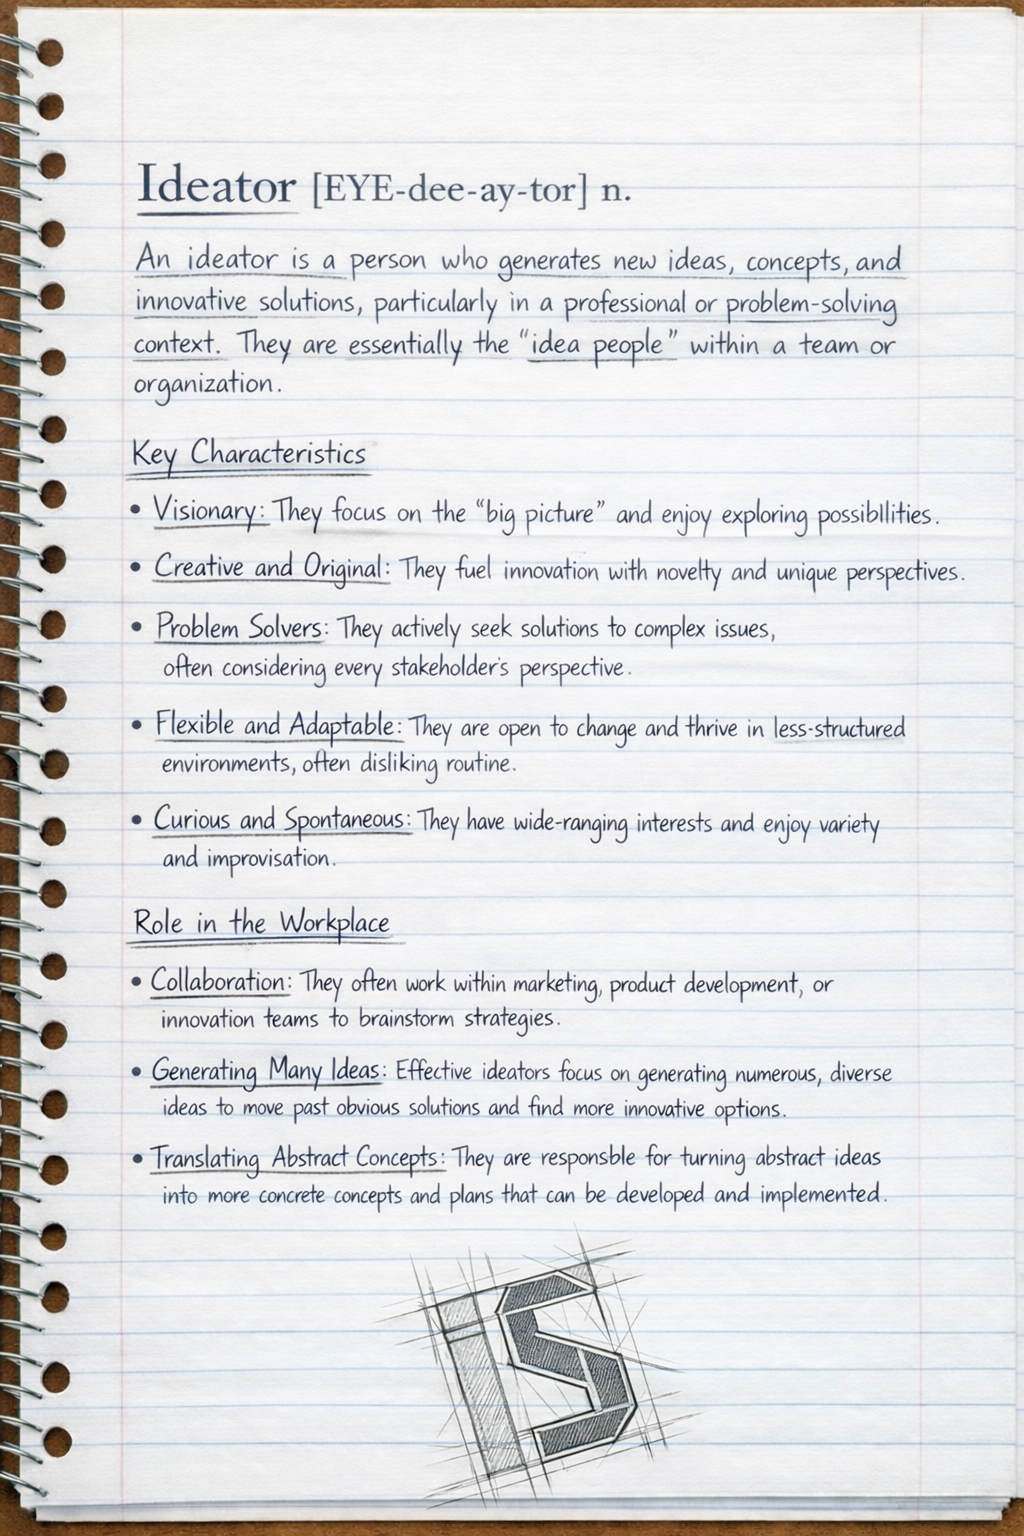 Ideator [EYE-dee-ay-tor] n.
An ideator is a person who generates new ideas, concepts, and
innovative solutions, particularly in a professional or problem-solving
context. They are essentially the “idea people” within a team or
organization.
Key Characteristics
• Visionary: They focus on the “big picture” and enjoy exploring possibilities.
• Creative and Original: They fuel innovation with novelty and unique perspectives.
• Problem Solvers: They actively seek solutions to complex issues,
often considering every stakeholder's perspective.
• Flexible and Adaptable: They are open to change and thrive in less-structured
environments, often disliking routine.
• Curious and Spontaneous: They have wide-ranging interests and enjoy variety
and improvisation.
Role in the Workplace
• Collaboration: They often work within marketing, product development, or
innovation teams to brainstorm strategies.
• Generating Many Ideas: Effective ideators focus on generating numerous, diverse
ideas to move past obvious solutions and find more innovative options.
• Translating Abstract Concepts: They are responsble for turning abstract ideas
into more concrete concepts and plans that can be developed and implemented.
iS